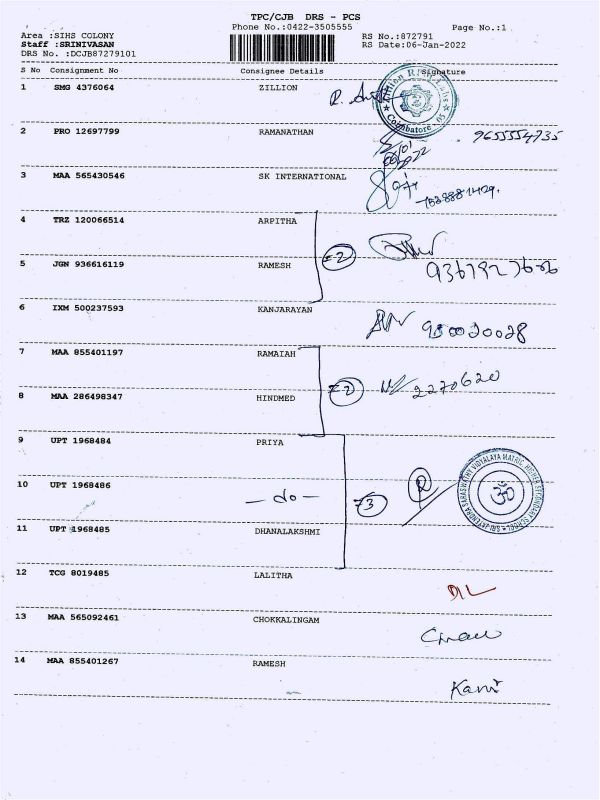 TPC/CJB DRS - PCS
Phone No.:0422-3505555 Page No.:1
Area :SIHS COLONY
Staff :SRINIVASAN
DRS No. :DCJB87279101
RS No.:872791
RS Date:06-Jan-2022
S No Consignment No Consignee Details Signature
1 SMG 4376064 ZILLION
Coimbatore - 05
2 PRO 12697799 RAMANATHAN 9655554735
3 MAA 565430546 SK INTERNATIONAL
4 TRZ 120066514 ARPITHA
=2
5 JGN 936616119 RAMESH
6 IXM 500237593 KANJARAYAN
7 MAA 855401197 RAMAIAH
=2 2270620
8 MAA 286498347 HINDMED
9 UPT 1968484 PRIYA
SRI JAYENDRA SARASWATHY VIDYALAYA MATRIC. HIGHER SECONDARY SCHOOL
ॐ
10 UPT 1968486 — do —
=3
11 UPT 1968485 DHANALAKSHMI
12 TCG 8019485 LALITHA
13 MAA 565092461 CHOKKALINGAM
14 MAA 855401267 RAMESH
Kavi